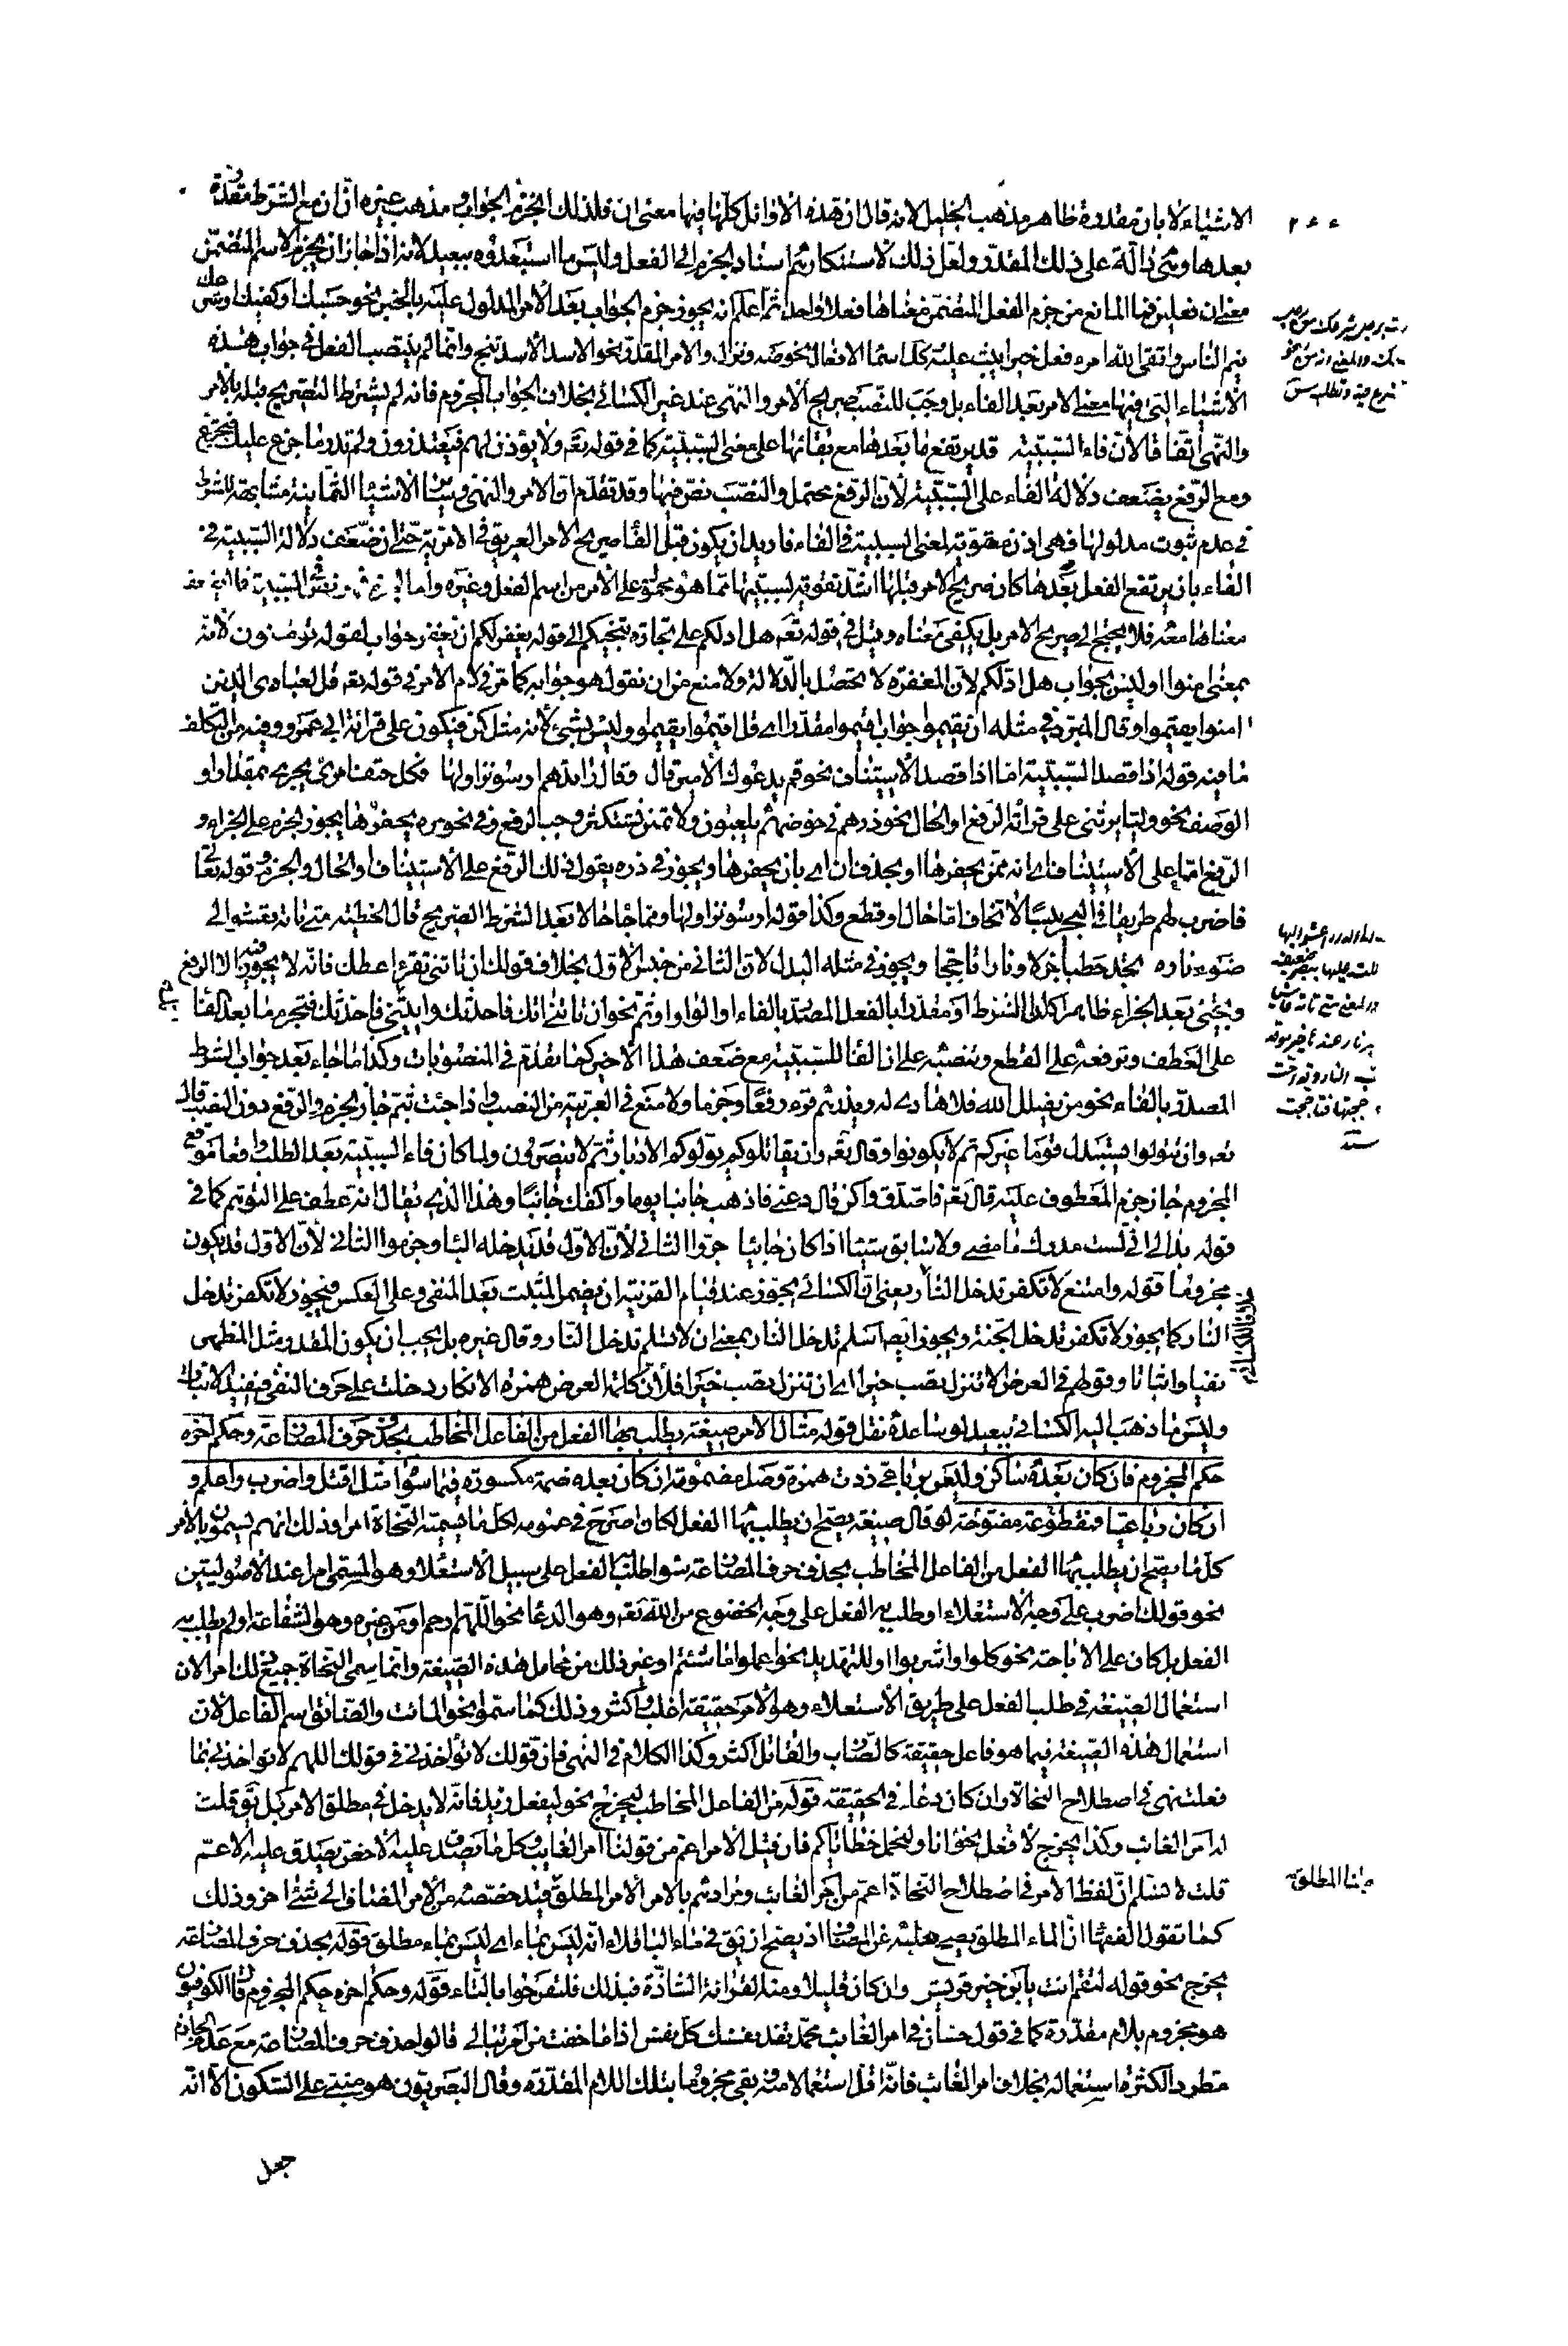 الاشياء لا بان مقدرة ظاهر مذهب الخليل لانه قال ان هذه الاوائل كلها فيها معنى ان فلذلك انجزم الجواب ومذهب غيره ان ان مع الشرط مقدرة
بعدها وهي دالة على ذلك المقدر ولعل ذلك لاستنكارهم اسناد الجزم الى الفعل وليس ما استبعدوه ببعيد لانه اذا جاز ان يجزم الاسم المتضمن
معنى ان فعلين فما المانع من جزم الفعل المتضمن معناها فعلا واحدا ثم اعلم انه يجوز جزم الجواب بعد الامر المدلول عليه بالخبر نحو حسبك او كفيك او شرعك
ينم الناس واتقى الله امرء فعل خيرا يثب عليه كذا اسماء الافعال نحو صه ونزال والامر المقدر نحو الاسد الاسد تنج وانما لم ينتصب الفعل في جواب هذه
الاشياء التي فيها معنى الامر بعد الفاء بل وجب للنصب صريح الامر والنهي عند غير الكسائي بخلاف الجواب المجزوم فانه لم يشترط التصريح قبله بالامر
والنهي اتفاقا لان فاء السببية قد يرتفع ما بعدها مع بقائها على معنى السببية كما في قوله تعه ولا يؤذن لهم فيعتذرون ولم تدر ما جزع عليك فتجزع
ومع الرفع يضعف دلالة الفاء على السببية لان الرفع محتمل والنصب نص فيها وقد تقدم ان الامر والنهي وسائر الاشياء الثمانية مشابهة للشرط
في عدم ثبوت مدلولها فهي اذن مقوية لمعنى السببية في الفاء فاريد ان يكون قبل الفاء صريح الامر العريق في الامرية حتى ان ضعف دلالة السببية في
الفاء بان يرتفع الفعل بعدها كان صريح الامر قبلها اشد تقوية لسببيتها مما هو محمول على الامر من اسم الفعل وغيره واما
معناها معه فلا يحتاج الى صريح الامر بل يكفي معناه وقيل في قوله تعه هل ادلكم على تجارة تنجيكم الى قوله يغفر لكم ان يغفر جواب لقوله تؤمنون لانه
بمعنى امنوا وليس بجواب هل ادلكم لان المغفرة لا تحصل بالدلالة ولا منع من ان نقول هو جوابه كما مر في لام الامر في قوله تعه قل لعبادي الذين
امنوا يقيموا وقال المبرد في مثله ان يقيموا جواب اقيموا مقدرا اى قل اقيموا يقيموا وليس بشئ لانه مثل كن فيكون على قراءة ابي عمرو وفيه من التكلف
ما فيه قوله اذا قصد السببية اما اذا قصد الاستيناف نحو قم يدعوك الامير قال وقال رائدهم ارسوا نزاولها فكل حتف امرئ يجري بمقدار او
الوصف نحو وليا يرثني على قرائة الرفع او الحال نحو ذرهم في خوضهم يلعبون ولا تمنن تستكثر وجب الرفع وفي نحو مره يحفرها يجوز الجزم على الجزاء و
الرفع اما على الاستيناف اى انه ممن يحفرها او بحذف ان اى بان يحفرها ويجوز في ذره يقول ذلك الرفع على الاستيناف او الحال والجزم وقوله تعا
فاضرب لهم طريقا في البحر يبسا لا تخاف اما حال او قطع وكذا قوله ارسوا نزاولها ومما جاء حالا بعد الشرط الصريح قال الحطيئه متى تاته تعشو الى
ضوء ناره تجد حطبا جزلا ونارا تاججا ويجوز في مثله البدل لان الثاني من جنس الاول بخلاف قولك ان تاتني تقرء اعطك فانه لا يجوز فيه الا الرفع
ويجئ بعد الجزاء ظاهرا كان الشرط او مقدرا بالفعل المصدر بالفاء او الواو او ثم نحو ان تاتني اتك فاحدثك وايتني فاحدثك فتجزم ما بعد الفاء
على العطف وترفعه على القطع وتنصبه على ان الفاء للسببية مع ضعف هذا الاخير كما تقدم في المنصوبات وكذا ما جاء بعد جواب الشرط
المصدر بالفاء نحو من يضلل الله فلا هادى له ويذرهم قرء رفعا وجزما ولا منع في العربية من النصب واذا جئت بثم جاز الجزم والرفع دون النصب قال
تعه وان تتولوا يستبدل قوما غيركم ثم لا يكونوا وقال تعه وان يقاتلوكم يولوكم الادبار ثم لا ينصرون ولما كان فاء السببية بعد الطلب واقعا موقع
المجزوم جاز جزم المعطوف عليه قال تعه فاصدق واكن قال دعني فاذهب جانبا يوما واكفك جانبا وهذا الذى يقال انه عطف على التوهم كما في
قوله بدا لى انى لست مدرك ما مضى ولا سابق شيئا اذا كان جائيا جروا الثاني لان الاول قد يدخله الباء وجزموا الثاني لان الاول قد يكون
مجزوما قوله وامتنع لا تكفر تدخل النار يعنى ان الكسائي يجوز عند قيام القرينة ان يضمر المثبت بعد المنفي وعلى العكس فيجوز لا تكفر تدخل
النار كما يجوز لا تكفر تدخل الجنة ويجوز ايضا اسلم تدخل النار بمعنى ان لا تسلم تدخل النار وقال غيره بل يجب ان يكون المقدر مثل المظهر
نفيا واثباتا وقولهم في العرض الا تنزل تصب خيرا اى ان تنزل تصب خيرا فلان كلمة العرض همزة الانكار دخلت على حرف النفي فيفيد الاثبات
وليس ما ذهب اليه الكسائي ببعيد لو ساعده نقل قوله مثال الامر صيغة يطلب بها الفعل من الفاعل المخاطب بحذف حرف المضارعة وحكم آخره
حكم المجزوم فان كان بعده ساكن وليس برباعى زدت همزة وصل مضمومة ان كان بعده ضمة مكسورة فيما سواه مثل اقتل واضرب واعلم و
ان كان رباعيا فمقطوعة مفتوحة لو قال صيغة يصح ان يطلب بها الفعل لكان اصرح في عمومه لكل ما يسميه النحاة امرا وذلك انهم يسمون بالامر
كل ما يصح ان يطلب بها الفعل من الفاعل المخاطب بحذف حرف المضارعة سواء طلب الفعل على سبيل الاستعلاء وهو المسمى امرا عند الاصوليين
نحو قولك اضرب على وجه الاستعلاء او طلب به الفعل على وجه الخضوع من الله تعه وهو الدعا نحو اللهم ارحم او من غيره وهو الشفاعة او لم يطلب به
الفعل بل كان على الاباحة نحو كلوا واشربوا او للتهديد نحو اعملوا ما شئتم او غير ذلك من محامل هذه الصيغة وانما سمى النحاة جميع ذلك امرا لان
استعمال الصيغة في طلب الفعل على طريق الاستعلاء وهو الامر حقيقة اغلب واكثر وذلك كما سموا نحو المائت والضائق اسم الفاعل لان
استعمال هذه الصيغة فيما هو فاعل حقيقة كالضارب والقاتل اكثر وكذا الكلام في النهى فان قولك لا تؤاخذني في قولك اللهم لا تؤاخذني بما
فعلت نهى في اصطلاح النحاة وان كان دعاء في الحقيقة قوله من الفاعل المخاطب ليخرج نحو ليفعل زيد فانه لا يدخل في مطلق الامر بل يق قلت
له امر الغائب وكذا يخرج لا فعل نحن انا ولنحمل خطاياكم فان قيل الامر اعم من قولنا امر الغايب وكل ما يصدق عليه الاخص يصدق عليه الاعم
قلت لا نسلم ان لفظ الامر في اصطلاح النحاة اعم من امر الغائب ومرادهم بالامر الامر المطلق قيد خصصه من الامر المضاف الى شئ اخر وذلك
كما تقول الفقها ان الماء المطلق يصح سلبه عن المضاف اذ يصح ان يق في ماء الباقلاء انه ليس بماء اى ليس بماء مطلق قوله بحذف حرف المضارعة
يخرج نحو قوله لتقم انت يا بن خير قريش وان كان قليلا ومنه القرائة الشاذة فبذلك فلتفرحوا بالتاء قوله وحكم اخره حكم المجزوم قال الكوفيون
هو مجزوم بلام مقدرة كما في قول حسان في امر الغائب محمد تفد نفسك كل نفس اذا ما خفت من امر تبالى قالوا حذف حرف المضارعة مع عدم الجازم
مطرد الكثرة استعماله بخلاف امر الغائب فانه اقل استعمالا منه فبقى مجزوما بتلك اللام المقدرة وقال البصريون هو مبنى على السكون الا انه
جعل